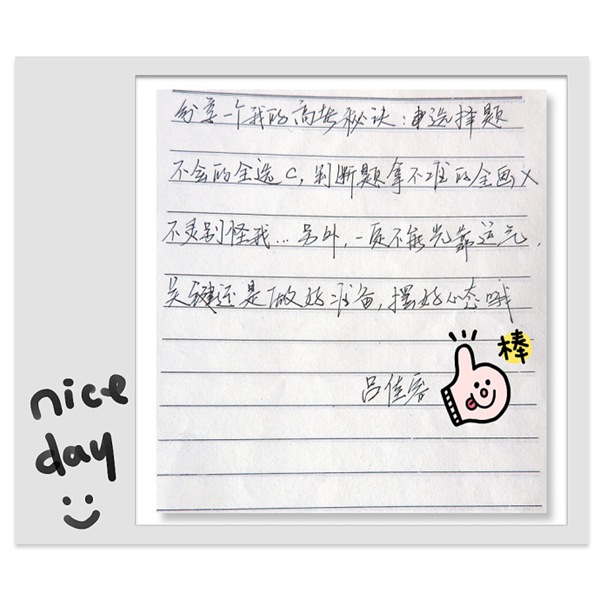 分享一个我的高考秘诀:单选择题
不会的全选C,判断题拿不准的全画X
不灵别怪我...另外,一定不能光靠运气,
关键还是做好准备,摆好心态哦
吕佳容
棒
nice
day